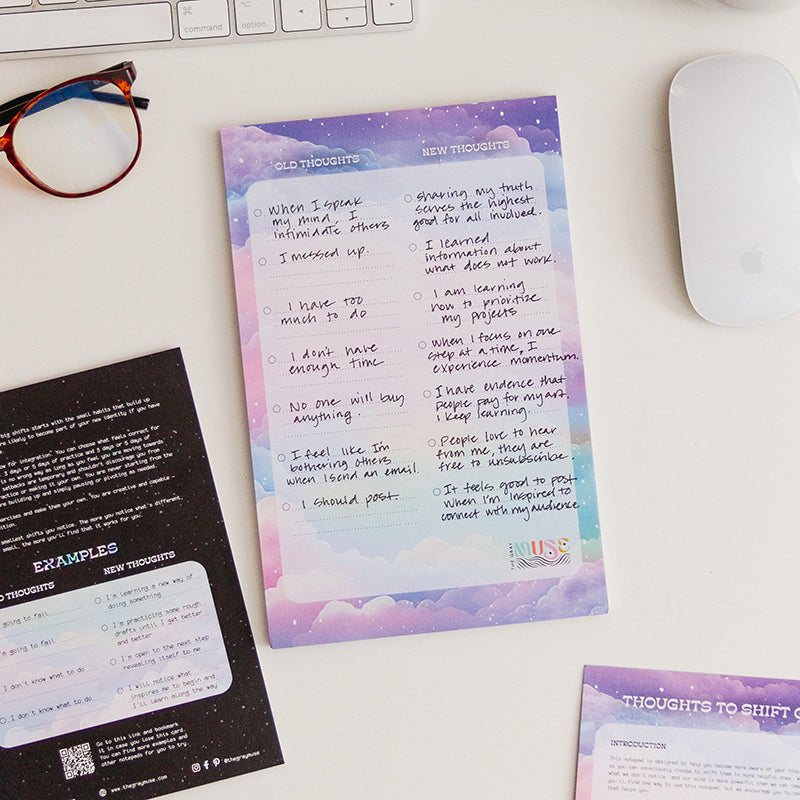 command
option
OLD THOUGHTS
When I speak
my mind, I
intimidate others
I messed up.
I have too
much to do
I don't have
enough time
No one will buy
anything.
I feel like I'm
bothering others
when I send an email.
I should post
NEW THOUGHTS
sharing my truth
serves the highest
good for all involved.
I learned
information about
what does not work.
I am learning
how to prioritize
my projects
when I focus on one
step at a time, I
experience momentum.
I have evidence that
people pay for my art.
I keep learning.
People love to hear
from me, they are
free to unsubscribe
It feels good to post
when I'm inspired to
connect with my audience
THE GRAY
MUSE
big shifts starts with the small habits that build up
likely to become part of your new identity if you have
for integration. You can choose what feels correct for
3 days or 6 days of practice and 3 days or 6 days of
is no wrong way as long as you feel you are moving towards
setbacks are temporary and shouldn't discourage you from
practice or making it your own. You are never starting from
are building up and simply pausing or pivoting as needed.
exercises and make them your own. You are creative and capable
smallest shifts you notice. The more you notice what's different,
small, the more you'll find that it works for you.
EXAMPLES
THOUGHTS
going to fail
I'm going to fail
I don't know what to do
I don't know what to do
NEW THOUGHTS
I'm learning a new way of
doing something
I'm practicing some rough
drafts until I get better
and better
I'm open to the next step
revealing itself to me
I will notice what
inspires me to begin and
I'll learn along the way
Go to this link and bookmark
it in case you lose this card.
You can find more examples and
other notepads for you to try.
www.thegraymuse.com
@thegraymuse
THOUGHTS TO SHIFT
INTRODUCTION
This notepad is designed to help you become more aware of your
so you can consciously choose to shift them to more helpful ones.
what we don't notice, and our mind is more powerful than we
you'll find one way to use this notepad, but we encourage you to
that helps you.